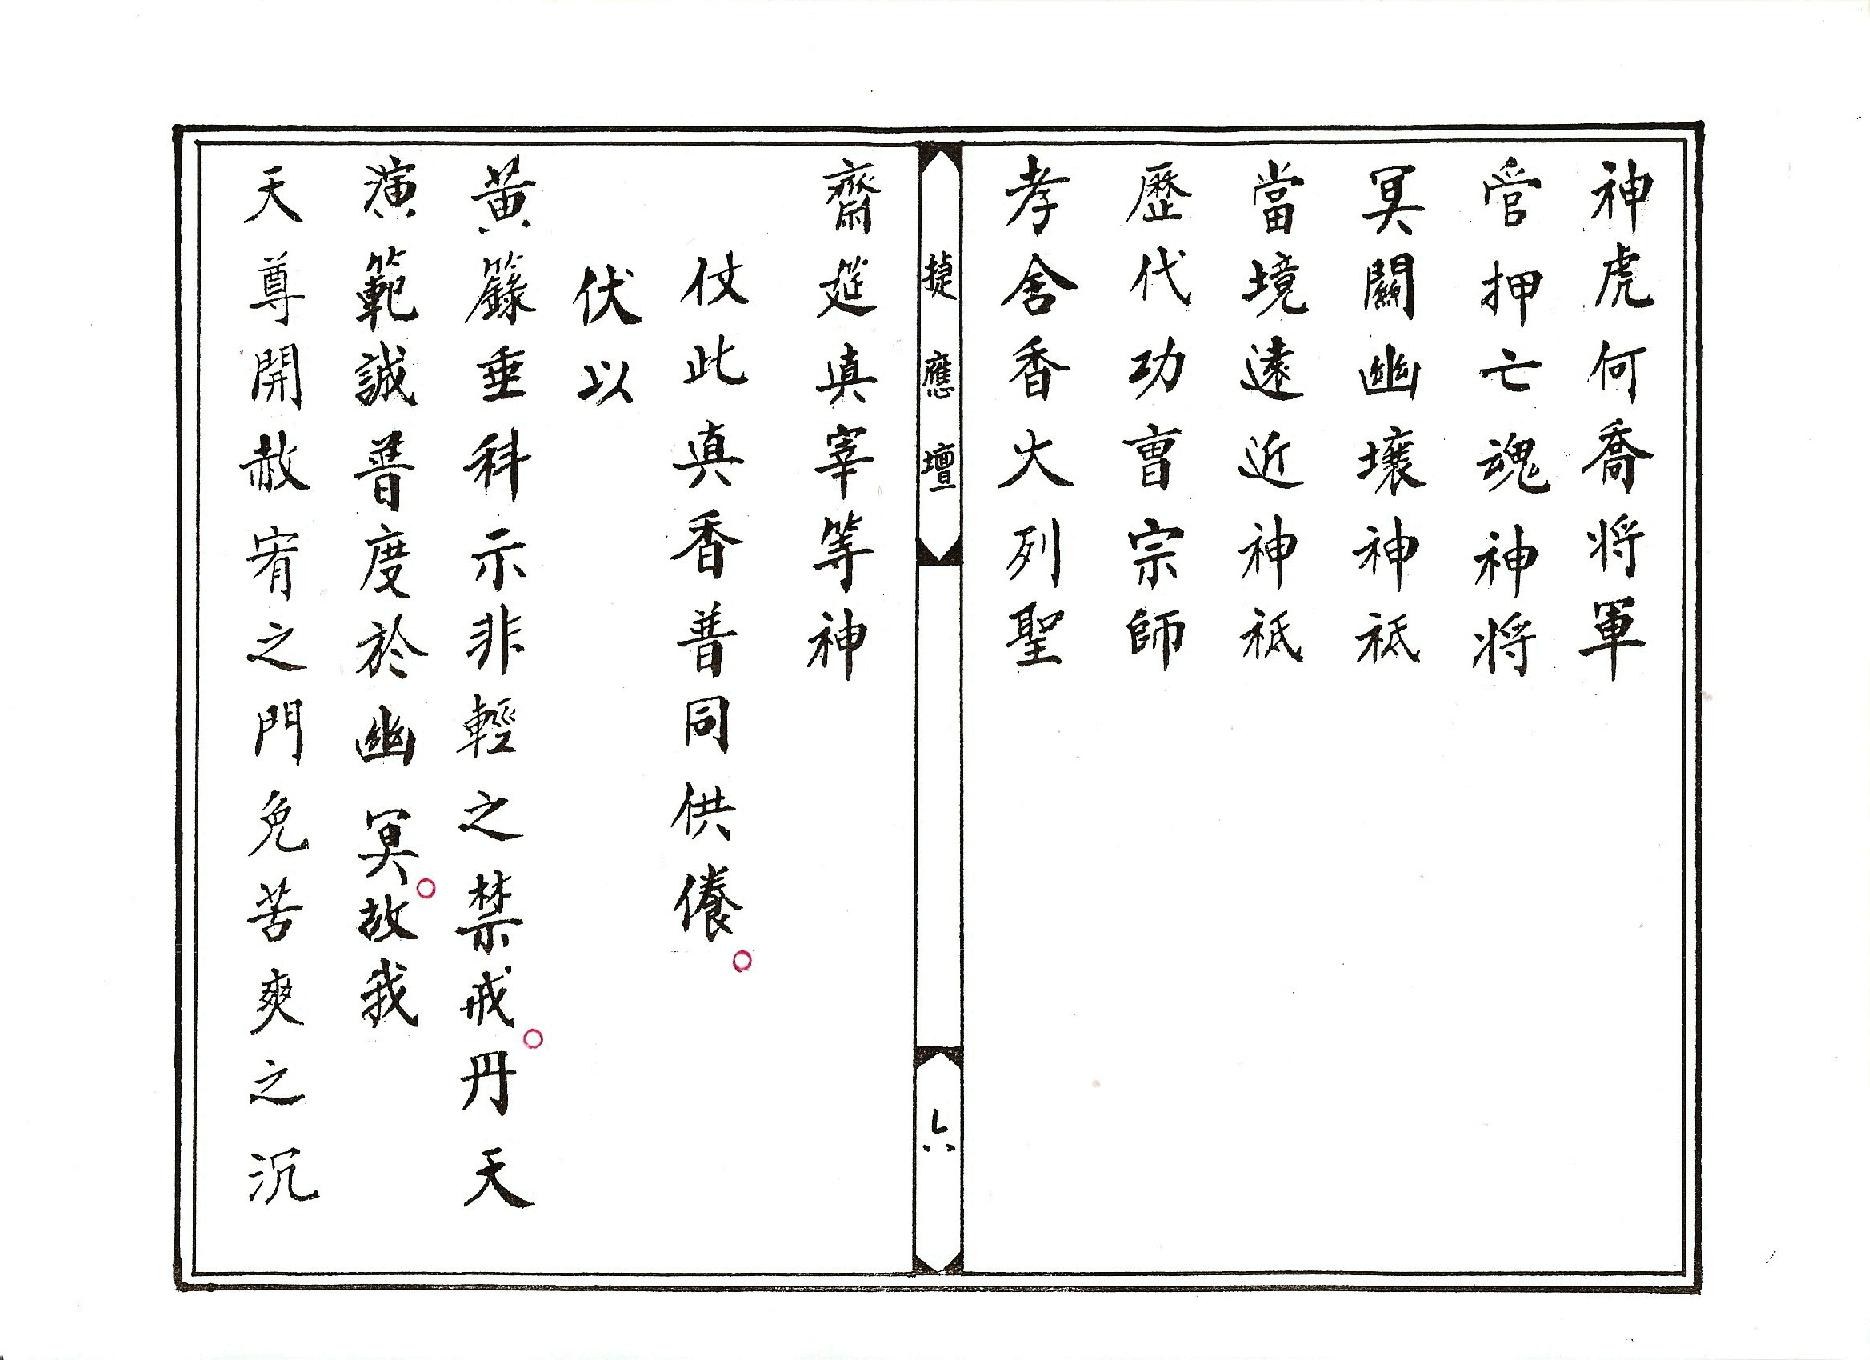 神虎何喬将軍
管押亡魂神将
冥關幽壤神祇
當境遠近神祇
歷代功曹宗師
孝舍香火列聖
捷應壇
六
齋筵真宰等神
仗此真香普同供養。
伏以
黃籙垂科示非輕之禁戒。丹天
演範誠普度於幽冥。故我
天尊開赦宥之門免苦爽之沉